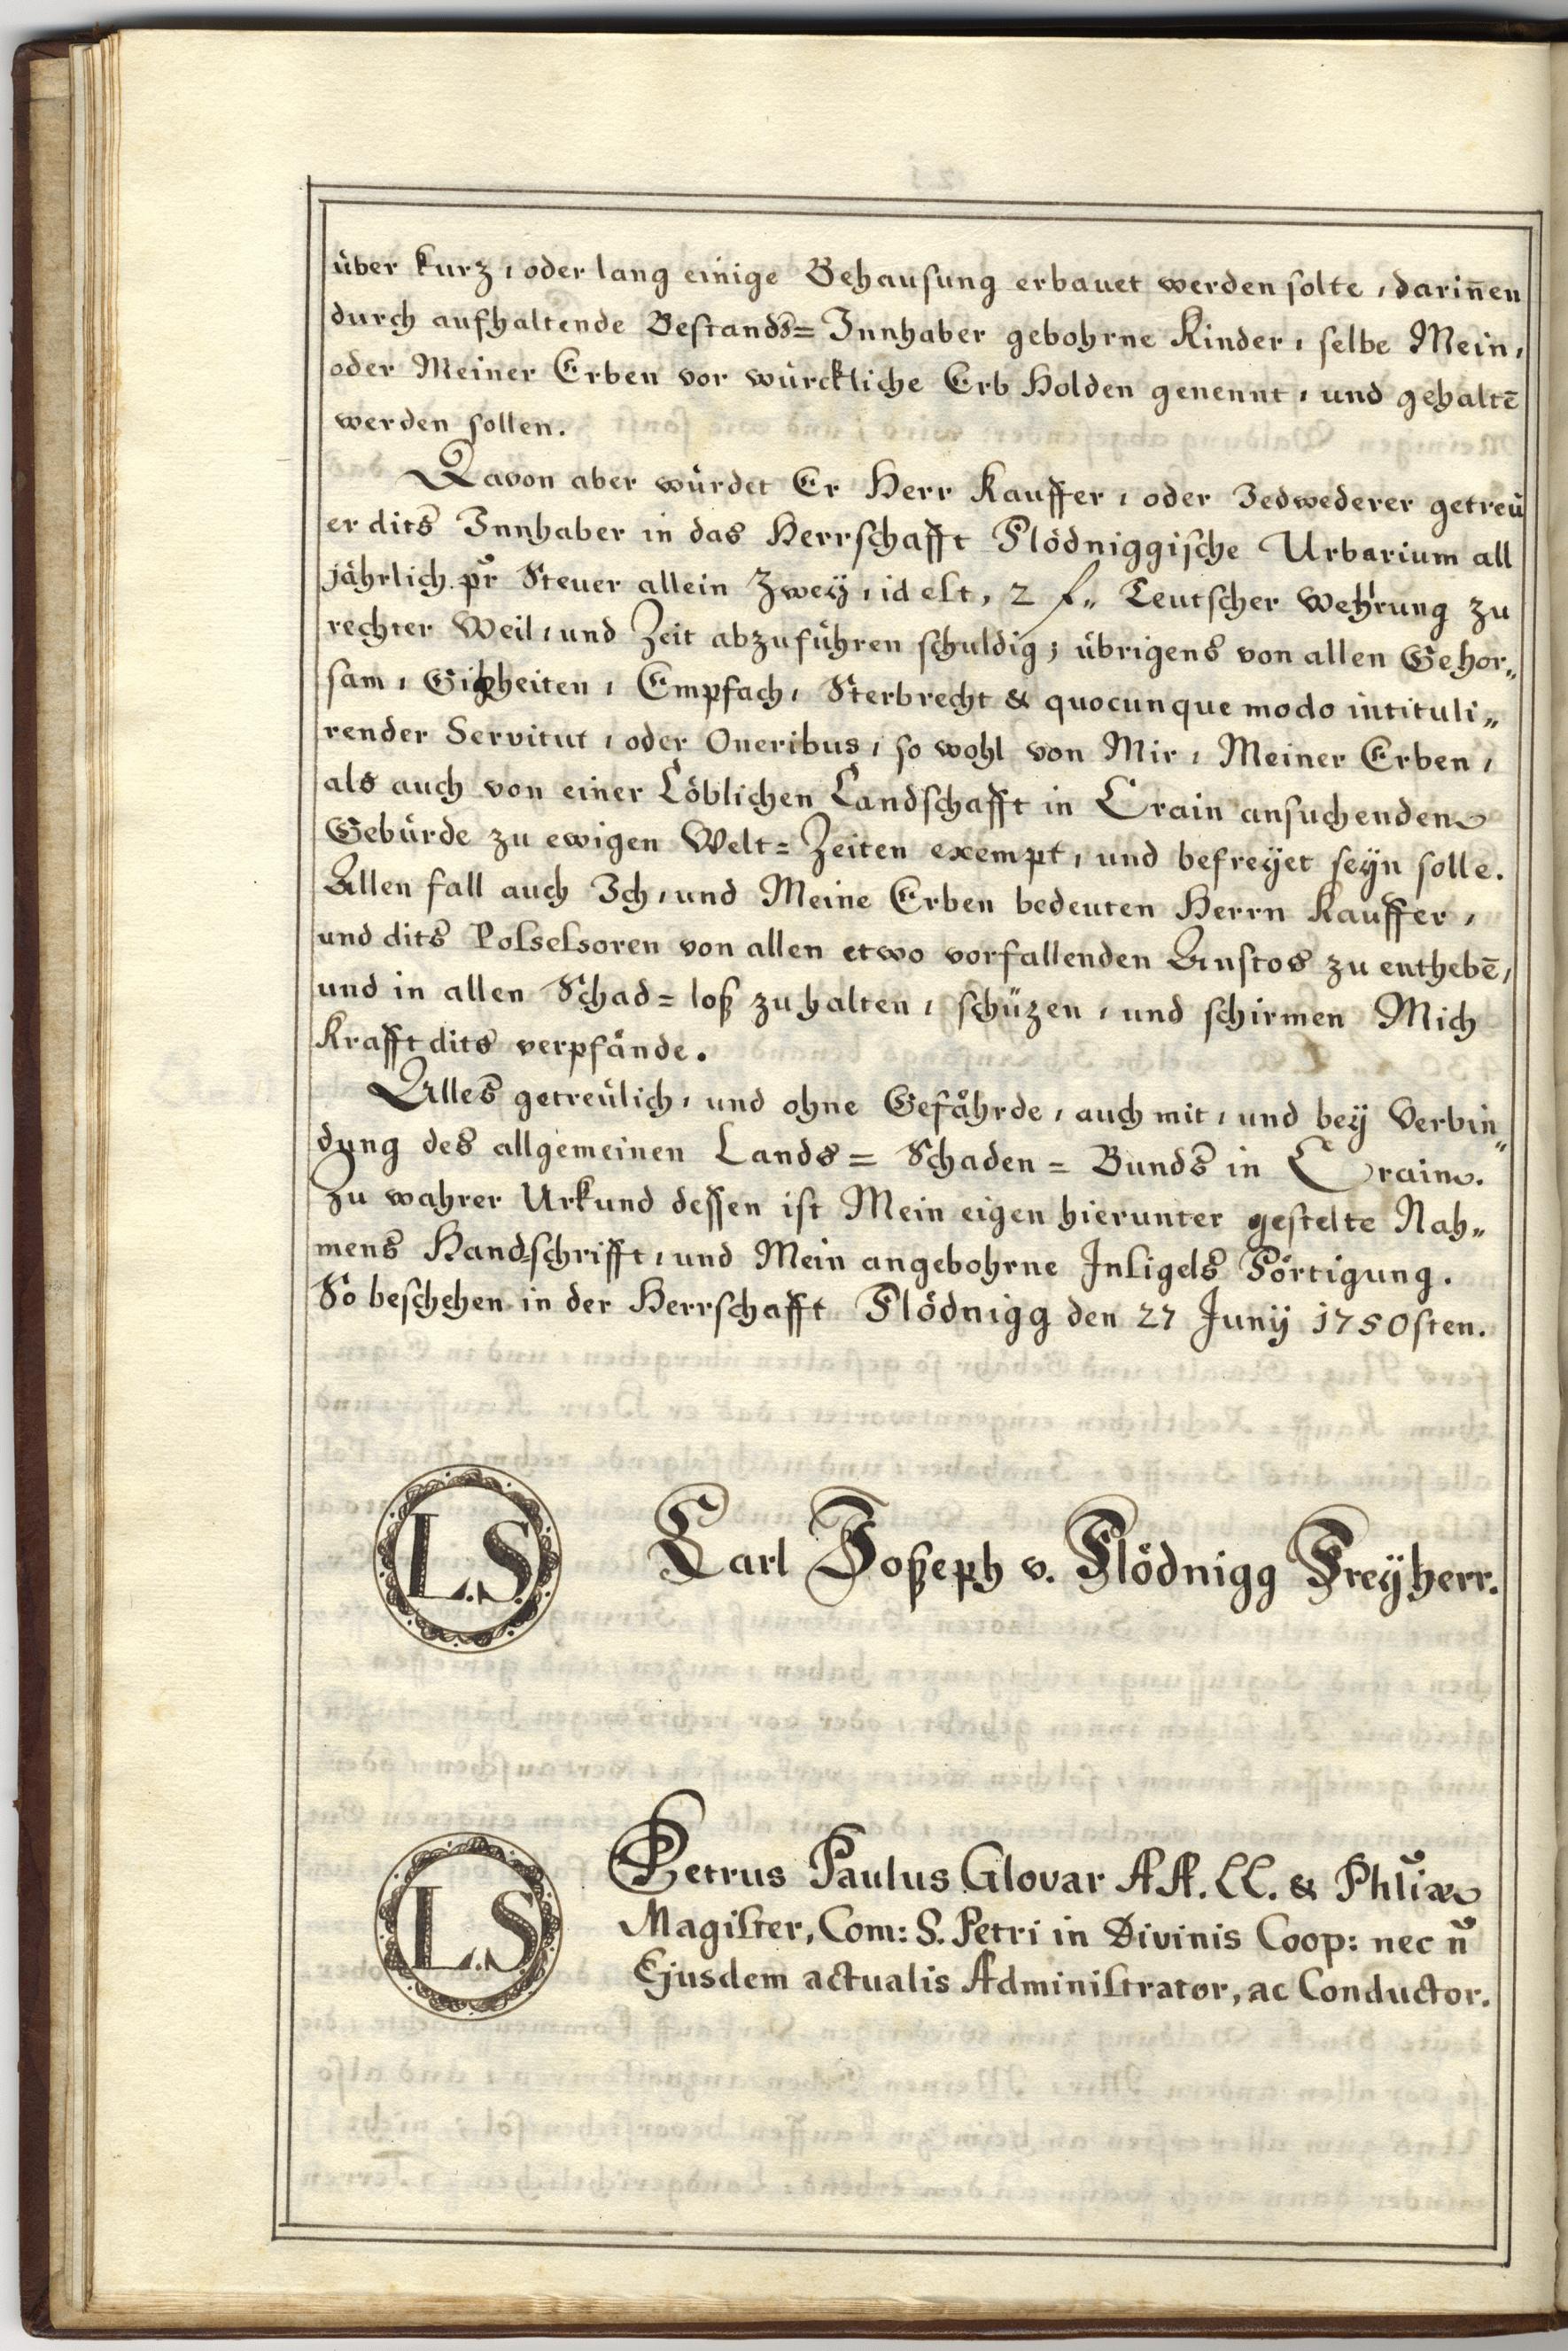 über kurz, oder lang einige Behausung erbauet werden solte, darin̄en
durch aufhaltende Bestands= Innhaber gebohrne Kinder, selbe Mein,
oder Meiner Erben vor würckliche Erb Holden genennt, und gehaltē
werden sollen.
Davon aber würdet Er Herr Kauffer, oder Jedwederer getreü
er dits Innhaber in das Herrschafft Flödniggische Urbarium all
jährlich pr Steuer allein Zweÿ, id est, 2 f„ Teutscher Wehrung zu
rechter Weil, und Zeit abzuführen schuldig; übrigens von allen Gehor„
sam, Gibheiten, Empfach, Sterbrecht & quocunque modo intituli„
render Servitut, oder Oneribus, so wohl von Mir, Meiner Erben,
als auch von einer Löblichen Landschafft in Crain ansuchenden
Gebürde zu ewigen Welt= Zeiten exempt, und befreÿet seÿn solle.
Allen fall auch Ich, und Meine Erben bedeuten Herrn Kauffer,
und dits Possessoren von allen etwo vorfallenden Anstos zu enthebē,
und in allen Schad= loß zu halten, schüzen, und schirmen Mich
Krafft dits verpfände.
Alles getreülich, und ohne Gefährde, auch mit, und beÿ Verbin„
dung des allgemeinen Lands= Schaden= Bunds in Crain.
Zu wahrer Urkund dessen ist Mein eigen hierunter gestelte Nah„
mens Hand=schrifft, und Mein angebohrne Insigels Förtigung.
So beschehen in der Herrschafft Flödnigg den 27 Junÿ 1750sten.
L.S. Carl Joßeph v. Flödnigg Freÿherr.
L.S. Petrus Paulus Glovar AA. LL. & Phliæ
Magister, Com: S. Petri in Divinis Coop: nec n̄
Ejusdem actualis Administrator, ac Conductor.